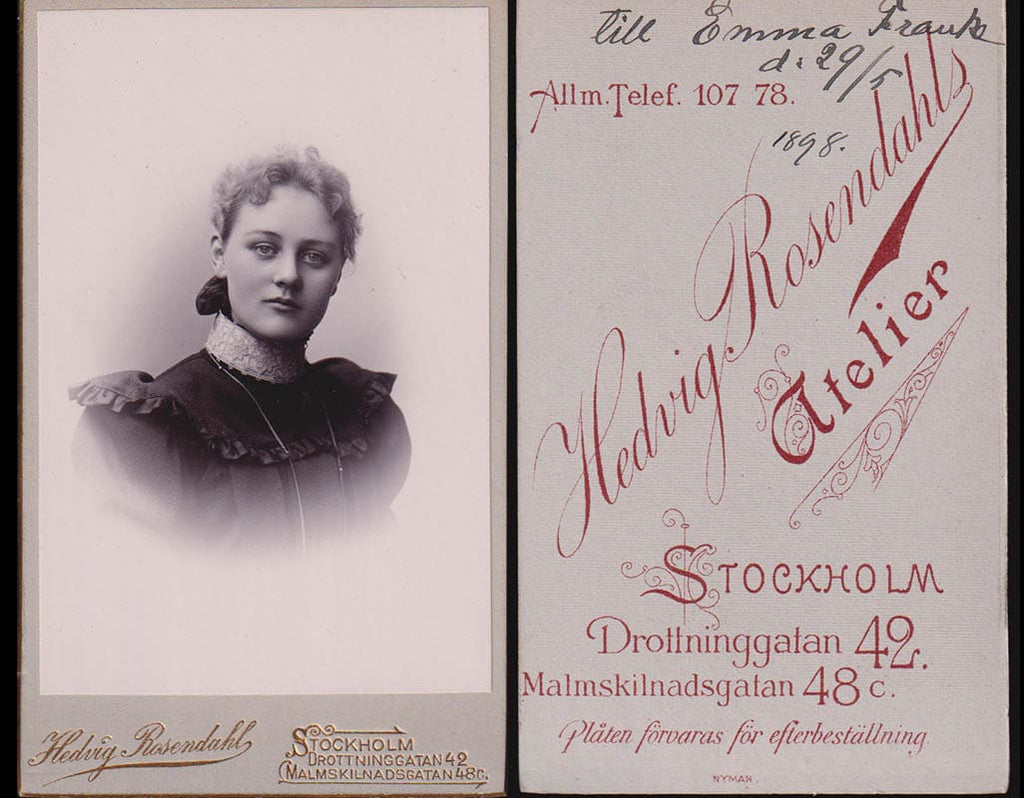 Hedvig Rosendahl
STOCKHOLM
DROTTNINGGATAN 42
MALMSKILNADSGATAN 48C.
till Emma Franke
d: 29/5
Allm. Telef. 107 78.
1898.
Hedvig Rosendahls
Atelier
STOCKHOLM
Drottninggatan 42.
Malmskilnadsgatan 48 c.
Plåten förvaras för efterbeställning.
NYMAN.